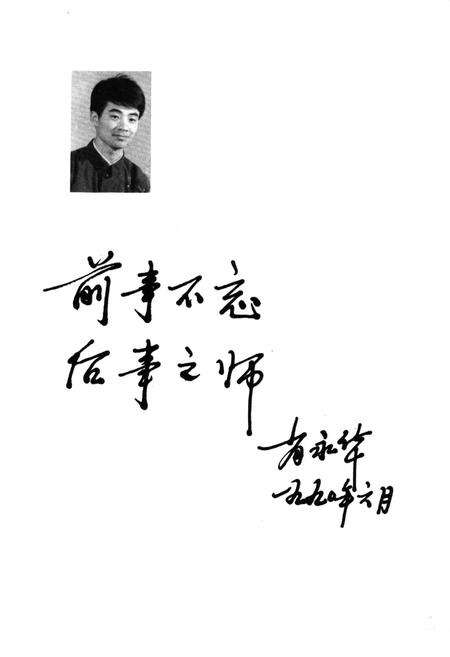 前事不忘
后事之师
肖永华
一九九〇年六月